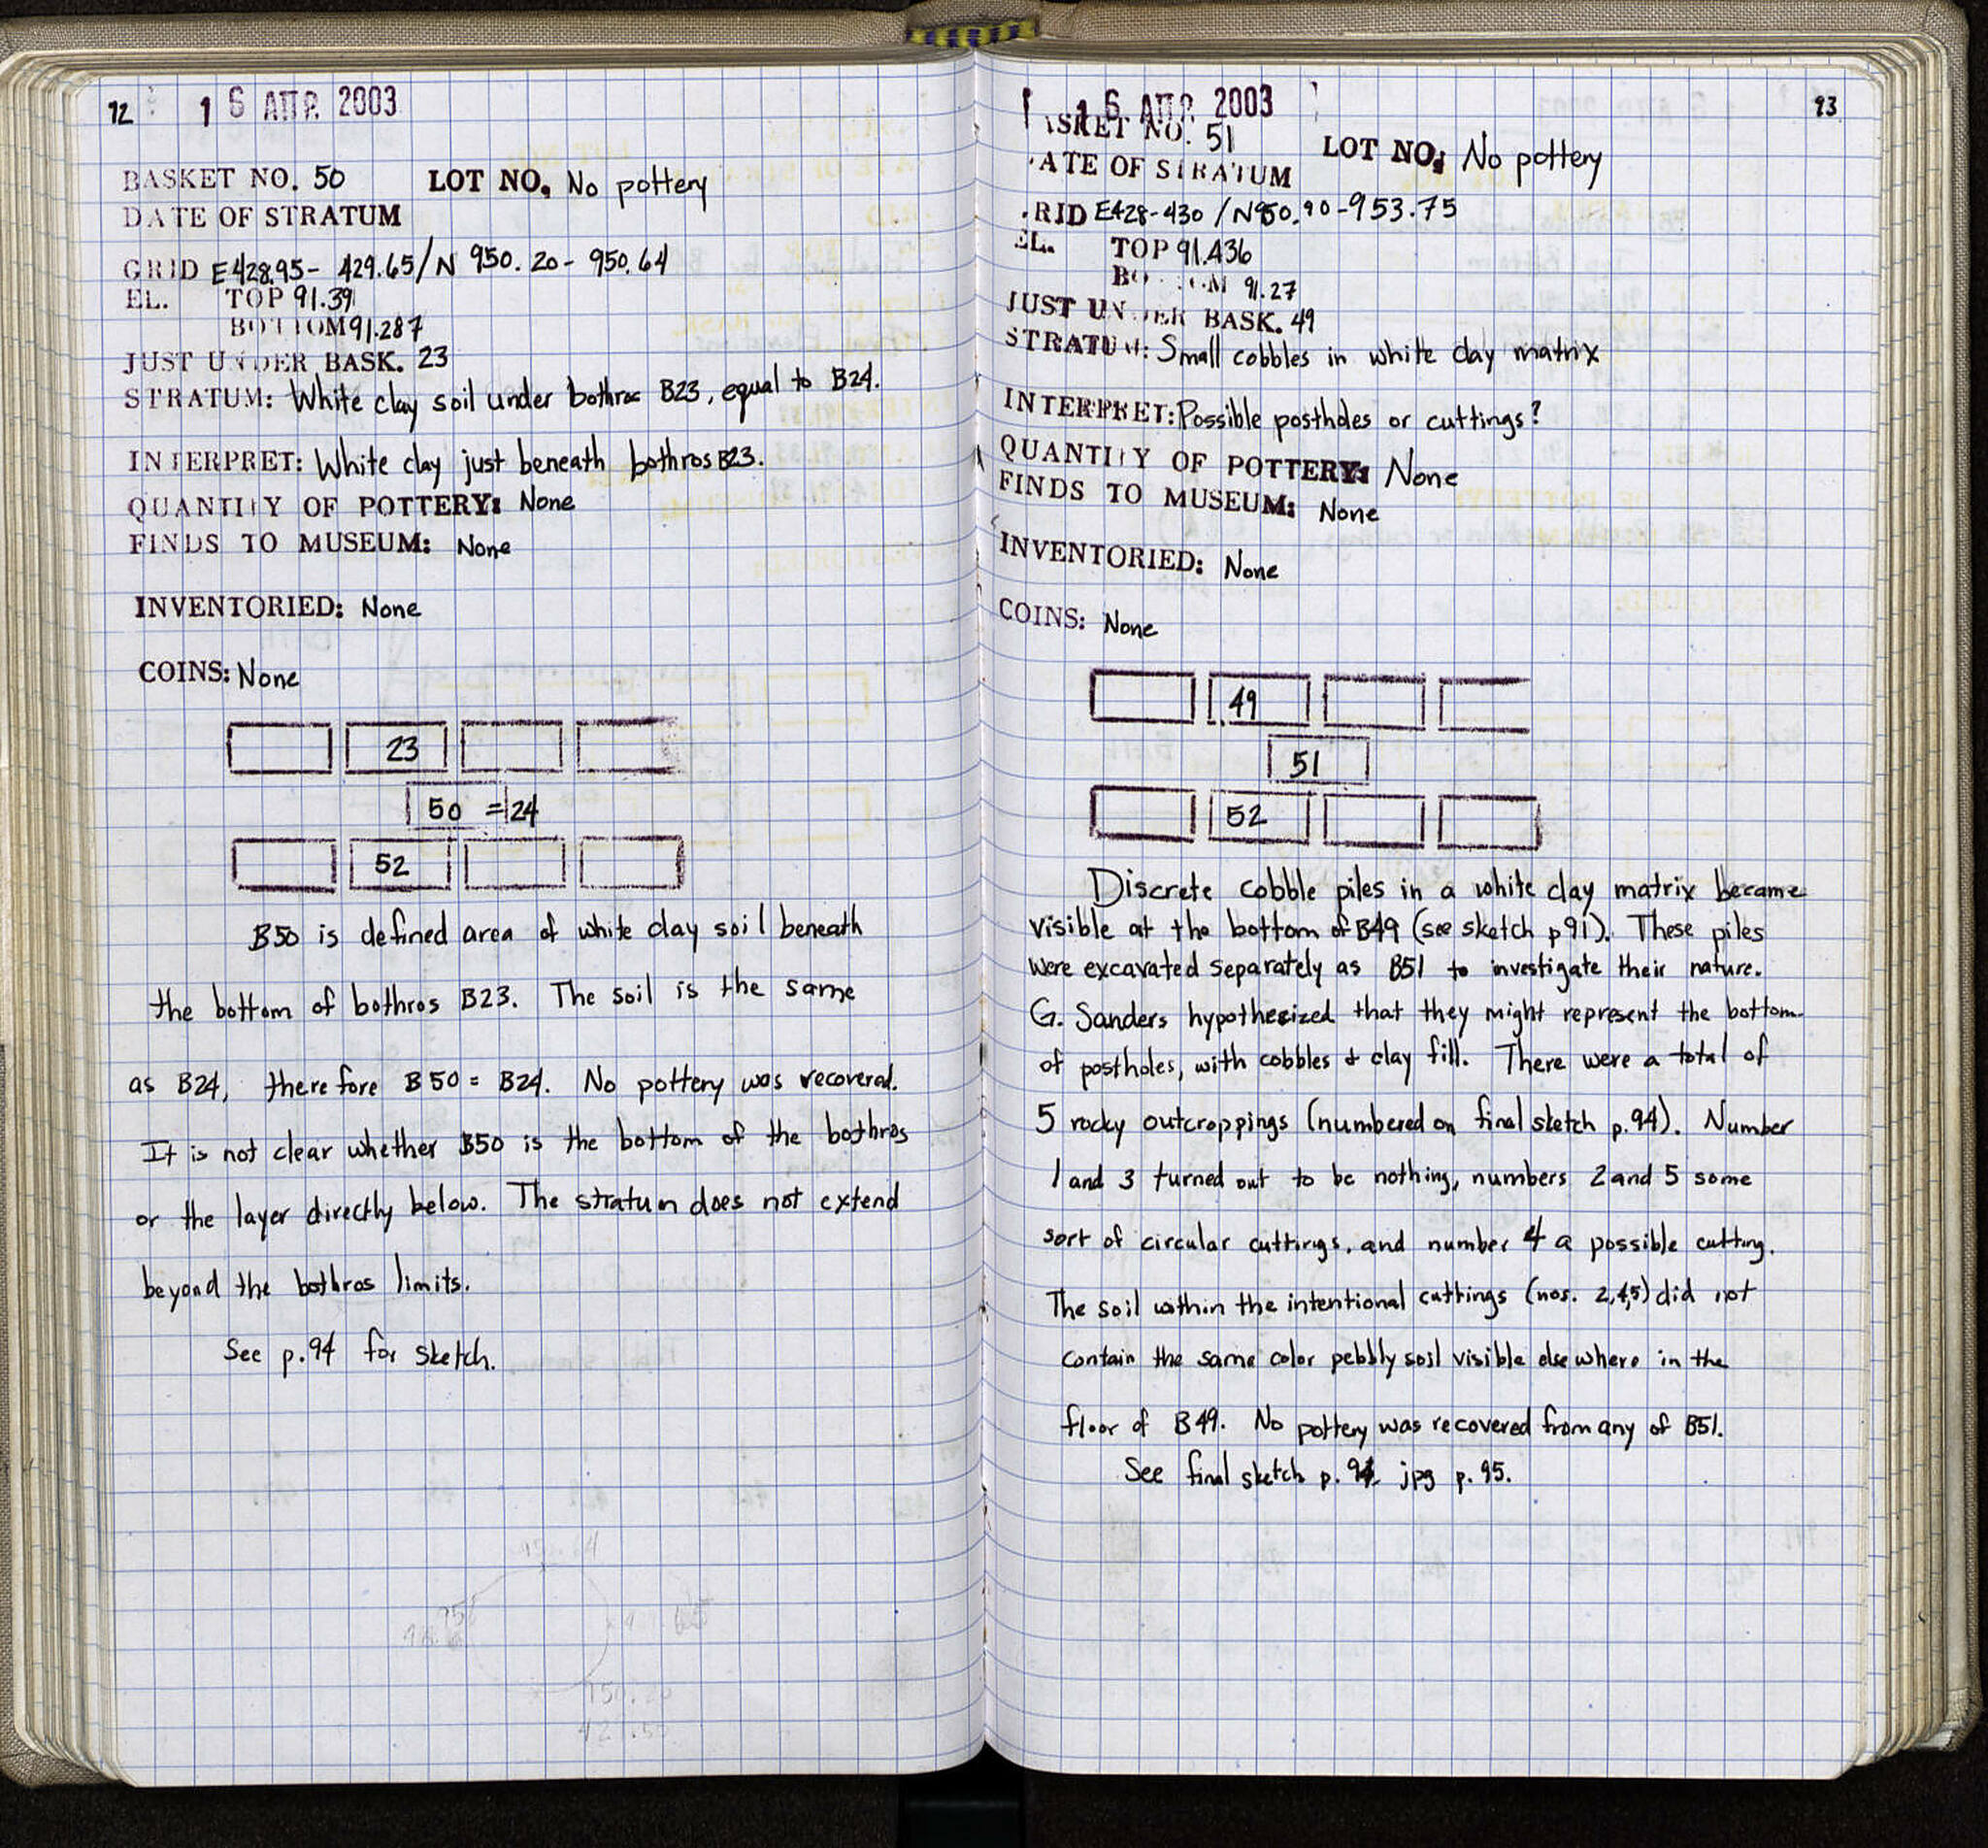 92
16 ΑΠΡ. 2003
BASKET NO. 50 LOT NO. No pottery
DATE OF STRATUM
GRID E428.95- 429.65/N 950.20- 950.64
EL. TOP 91.39
BOTTOM 91.287
JUST UNDER BASK. 23
STRATUM: White clay soil under bothros B23, equal to B24.
INTERPRET: White clay just beneath bothros B23.
QUANTITY OF POTTERY: None
FINDS TO MUSEUM: None
INVENTORIED: None
COINS: None
23
50 = 24
52
B50 is defined area of white clay soil beneath
the bottom of bothros B23. The soil is the same
as B24, therefore B50 = B24. No pottery was recovered.
It is not clear whether B50 is the bottom of the bothros
or the layer directly below. The stratum does not extend
beyond the bothros limits.
See p.94 for sketch.
93
16 ΑΠΡ. 2003
ASKET NO. 51 LOT NO: No pottery
ATE OF STRATUM
RID E428-430 /N950.90-953.75
EL. TOP 91.436
BOTTOM 91.27
JUST UNDER BASK. 49
STRATUM: Small cobbles in white clay matrix
INTERPRET: Possible postholes or cuttings?
QUANTITY OF POTTERY: None
FINDS TO MUSEUM: None
INVENTORIED: None
COINS: None
49
51
52
Discrete cobble piles in a white clay matrix became
visible at the bottom of B49 (see sketch p91). These piles
were excavated separately as B51 to investigate their nature.
G. Sanders hypothesized that they might represent the bottom
of postholes, with cobbles & clay fill. There were a total of
5 rocky outcroppings (numbered on final sketch p.94). Number
1 and 3 turned out to be nothing, numbers 2 and 5 some
sort of circular cuttings, and number 4 a possible cutting.
The soil within the intentional cuttings (nos. 2,4,5) did not
contain the same color pebbly soil visible elsewhere in the
floor of B49. No pottery was recovered from any of B51.
See final sketch p. 94 jpg p. 95.